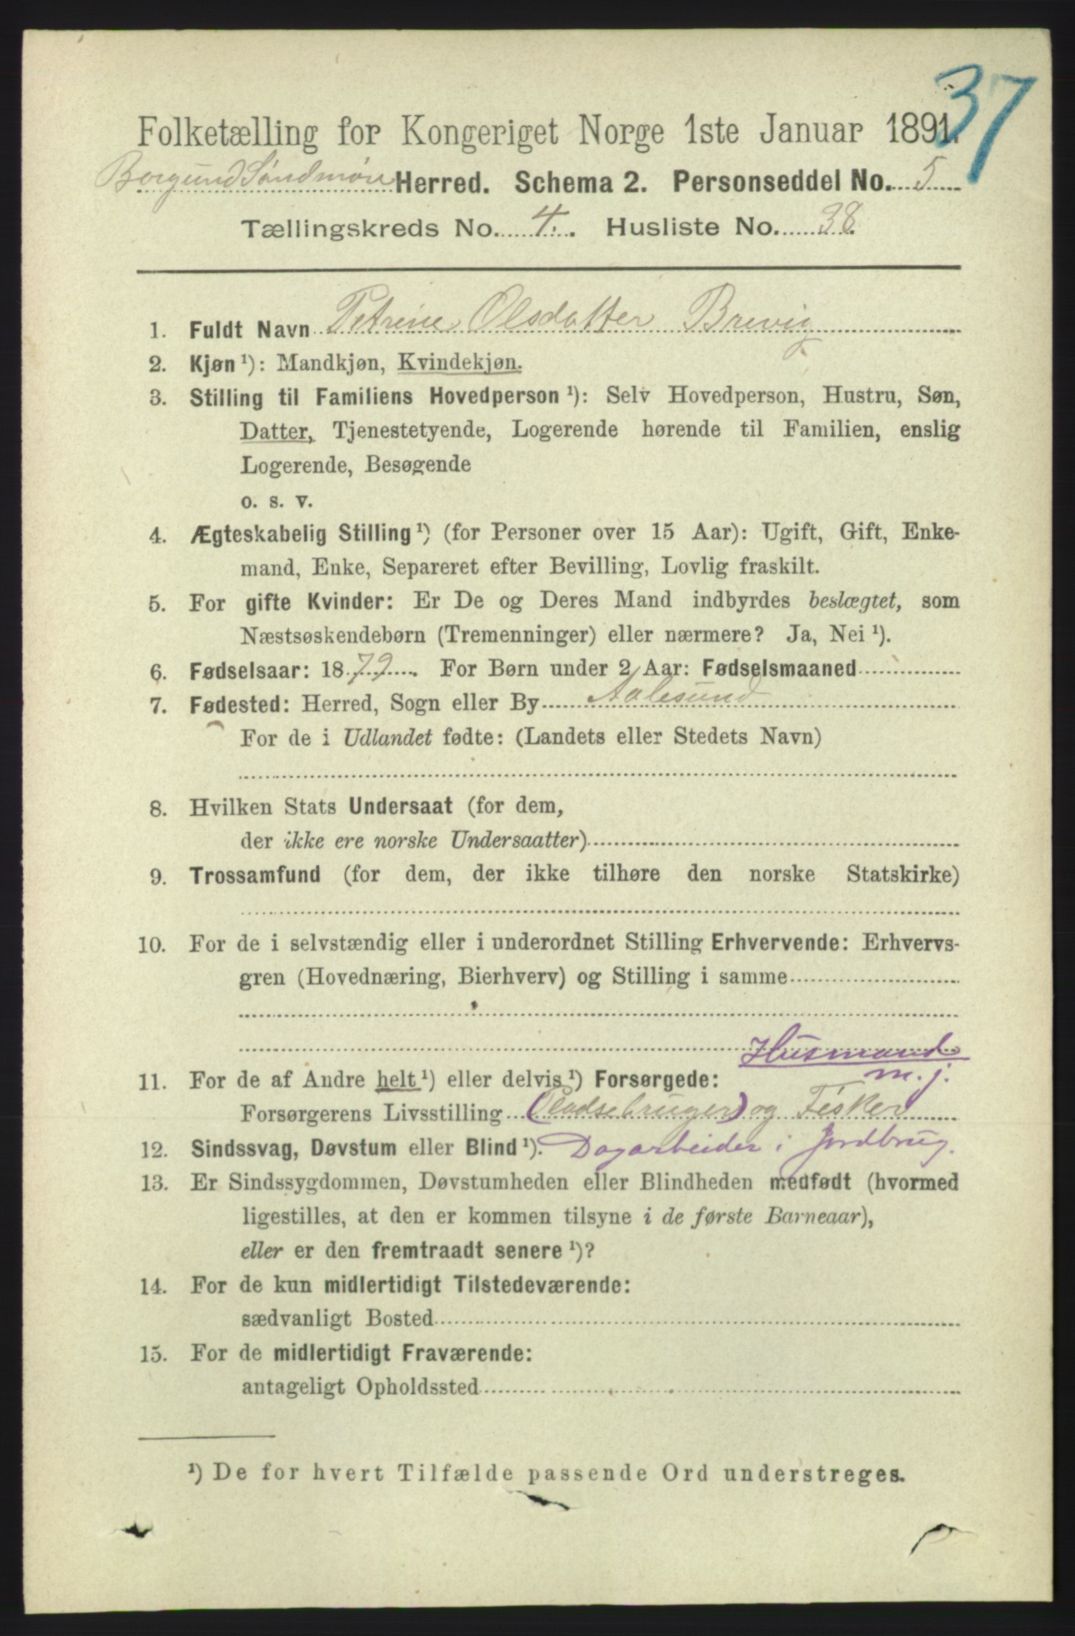 37
Folketælling for Kongeriget Norge 1ste Januar 1891.
Borgund Søndmøre Herred. Schema 2. Personseddel No. 5
Tællingskreds No. 4. Husliste No. 38.
1. Fuldt Navn Petrine Olsdatter Brevig
2. Kjøn ¹): Mandkjøn, Kvindekjøn.
3. Stilling til Familiens Hovedperson ¹): Selv Hovedperson, Hustru, Søn,
Datter, Tjenestetyende, Logerende hørende til Familien, enslig
Logerende, Besøgende
o. s. v.
4. Ægteskabelig Stilling ¹) (for Personer over 15 Aar): Ugift, Gift, Enke-
mand, Enke, Separeret efter Bevilling, Lovlig fraskilt.
5. For gifte Kvinder: Er De og Deres Mand indbyrdes beslægtet, som
Næstsøskendebørn (Tremenninger) eller nærmere? Ja, Nei ¹).
6. Fødselsaar: 1879. For Børn under 2 Aar: Fødselsmaaned
7. Fødested: Herred, Sogn eller By Aalesund
For de i Udlandet fødte: (Landets eller Stedets Navn)
8. Hvilken Stats Undersaat (for dem,
der ikke ere norske Undersaatter)
9. Trossamfund (for dem, der ikke tilhøre den norske Statskirke)
10. For de i selvstændig eller i underordnet Stilling Erhvervende: Erhvervs-
gren (Hovednæring, Bierhverv) og Stilling i samme
Husmand
m. j.
11. For de af Andre helt ¹) eller delvis ¹) Forsørgede:
Forsørgerens Livsstilling (Pladsebruger) og Fisker
12. Sindssvag, Døvstum eller Blind ¹). Dagarbeider i Jordbrug.
13. Er Sindssygdommen, Døvstumheden eller Blindheden medfødt (hvormed
ligestilles, at den er kommen tilsyne i de første Barneaar),
eller er den fremtraadt senere ¹)?
14. For de kun midlertidigt Tilstedeværende:
sædvanligt Bosted
15. For de midlertidigt Fraværende:
antageligt Opholdssted
¹) De for hvert Tilfælde passende Ord understreges.